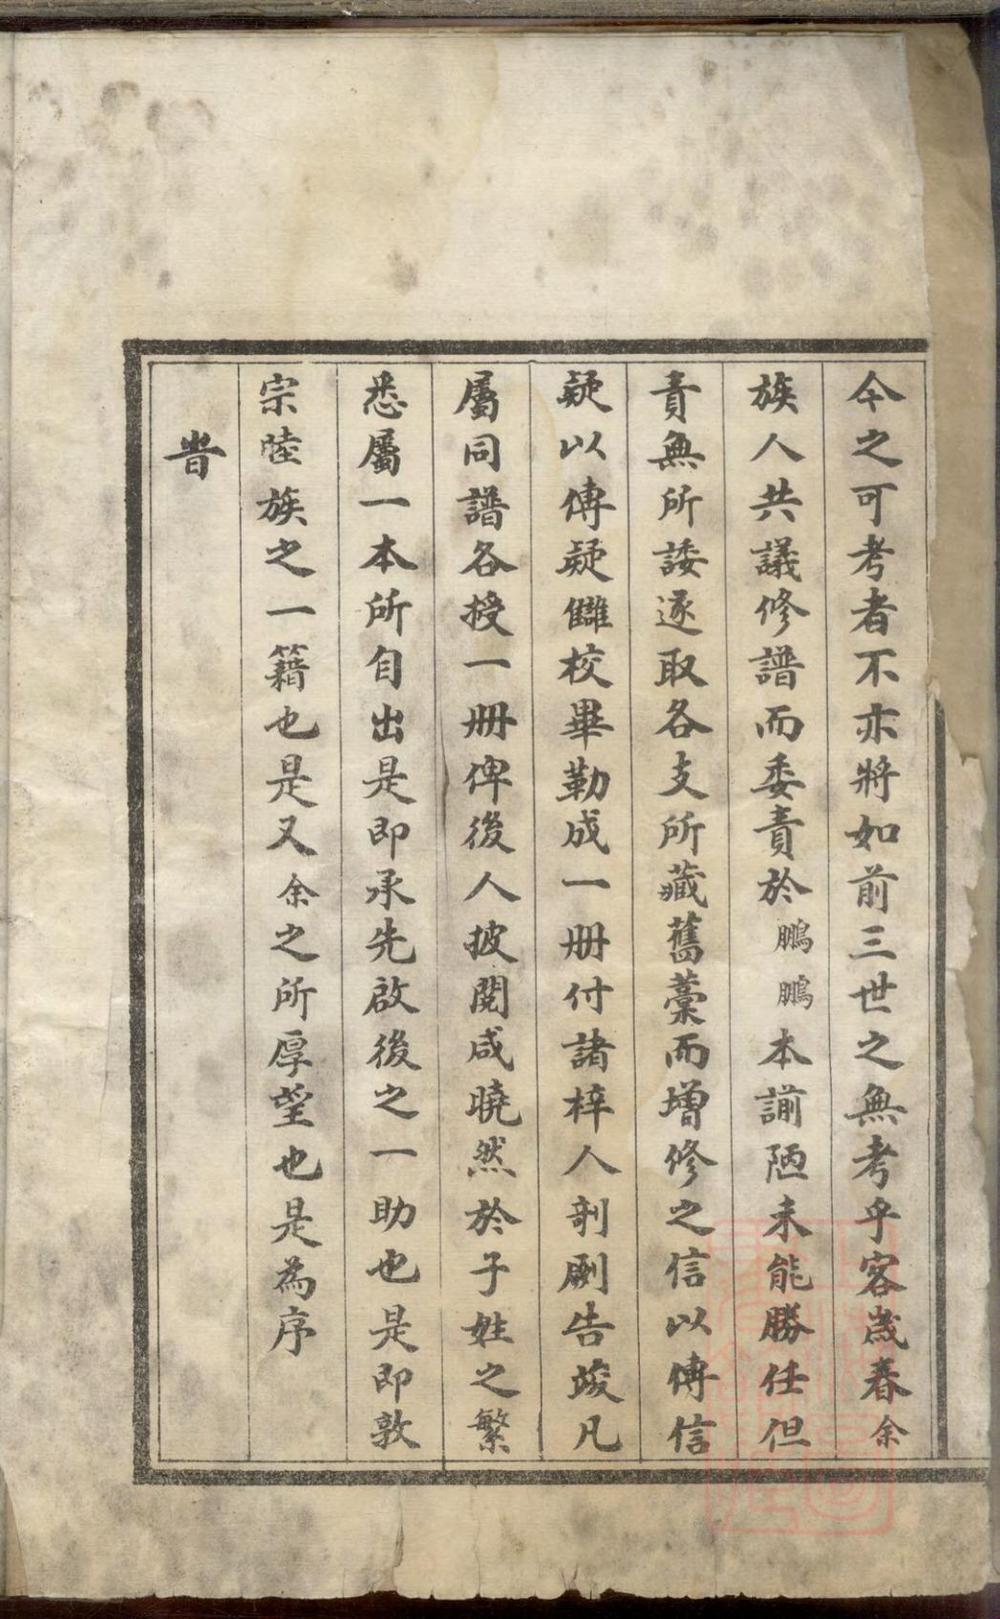 今之可考者不亦將如前三世之無考乎客歲春余
族人共議修譜而委責於鵬鵬本譾陋未能勝任但
責無所諉遂取各支所藏舊藁而增修之信以傳信
疑以傳疑讎校畢勒成一册付諸梓人剞劂告竣凡
屬同譜各授一册俾後人披閱咸曉然於子姓之繁
悉屬一本所自出是即承先啟後之一助也是即敦
宗睦族之一籍也是又余之所厚望也是為序
旹